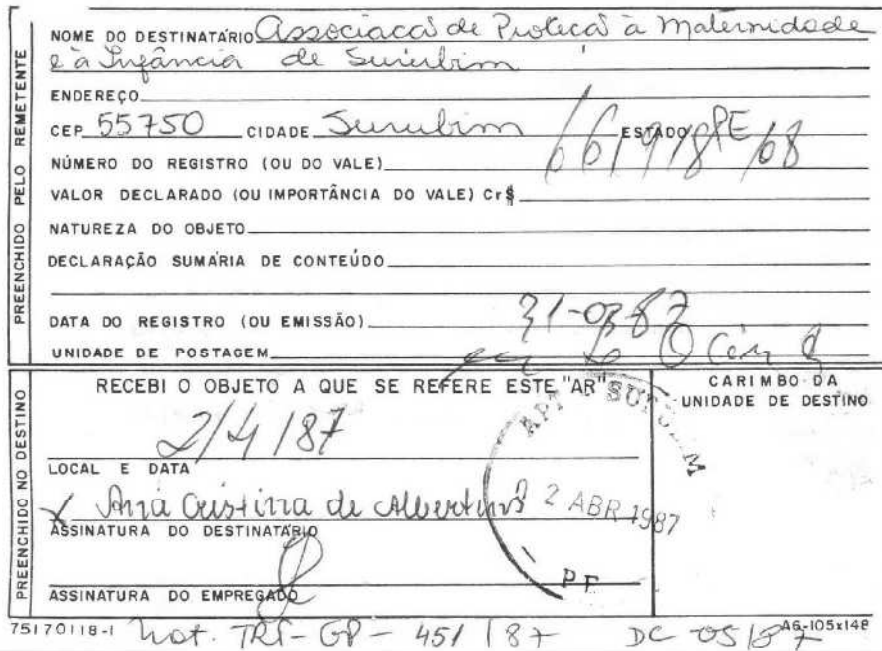 PREENCHIDO PELO REMETENTE
NOME DO DESTINATÁRIO Associacaõ de Proteçaõ à Maternidade
e à Infância de Surubim
ENDEREÇO
CEP 55750 CIDADE Surubim ESTADO PE
NÚMERO DO REGISTRO (OU DO VALE) 661918/68
VALOR DECLARADO (OU IMPORTÂNCIA DO VALE) Cr$
NATUREZA DO OBJETO
DECLARAÇÃO SUMÁRIA DE CONTEÚDO
DATA DO REGISTRO (OU EMISSÃO) 31-03-87
UNIDADE DE POSTAGEM
PREENCHIDO NO DESTINO
RECEBI O OBJETO A QUE SE REFERE ESTE "AR"
CARIMBO DA
UNIDADE DE DESTINO
2/4/87
LOCAL E DATA
x Ana Cristina de Albertins
ASSINATURA DO DESTINATÁRIO
ASSINATURA DO EMPREGADO
SURUBIM
2 ABR 1987
PE
75170118-1
A6-105x148
Not. TRT-GP-451/87 DC-05/87